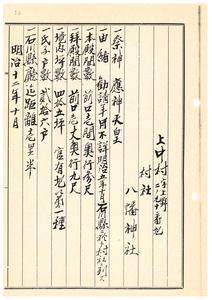 上中村字上野
二ノ九十番地
村社
八幡神社
一祭神 應神天皇
一由緒 勧請年月不詳明治五年石川縣ヨリ村社ニ列ス
一本殿間数 前口壱間奥行参尺
一拝殿間数 前口弐間 奥行九尺
一境内坪数 四拾五坪 官有地第一種
一氏子戸数 貳拾六戸
一石川縣廳迄距離壱里半
明治十二年十月